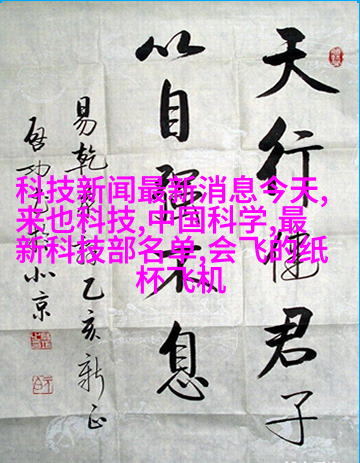 天行健君子
以自強不息
易乾乙亥新正
啟功北京
科技新闻最新消息今天,
来也科技,中国科学,最
新科技部名单,会飞的纸
杯飞机